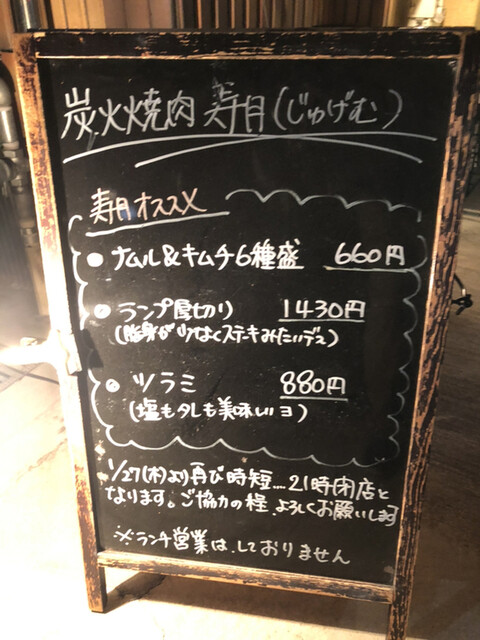 炭火焼肉 寿月(じゅげむ)
寿月オススメ
ナムル&キムチ6種盛 660円
ランプ厚切り 1430円
(脂身が少なくステーキみたいデス)
ツラミ 880円
(塩もタレも美味しいヨ)
1/27(木)より再び時短....21時閉店と
なります。ご協力の程、よろしくお願いします
※ランチ営業は、しておりません